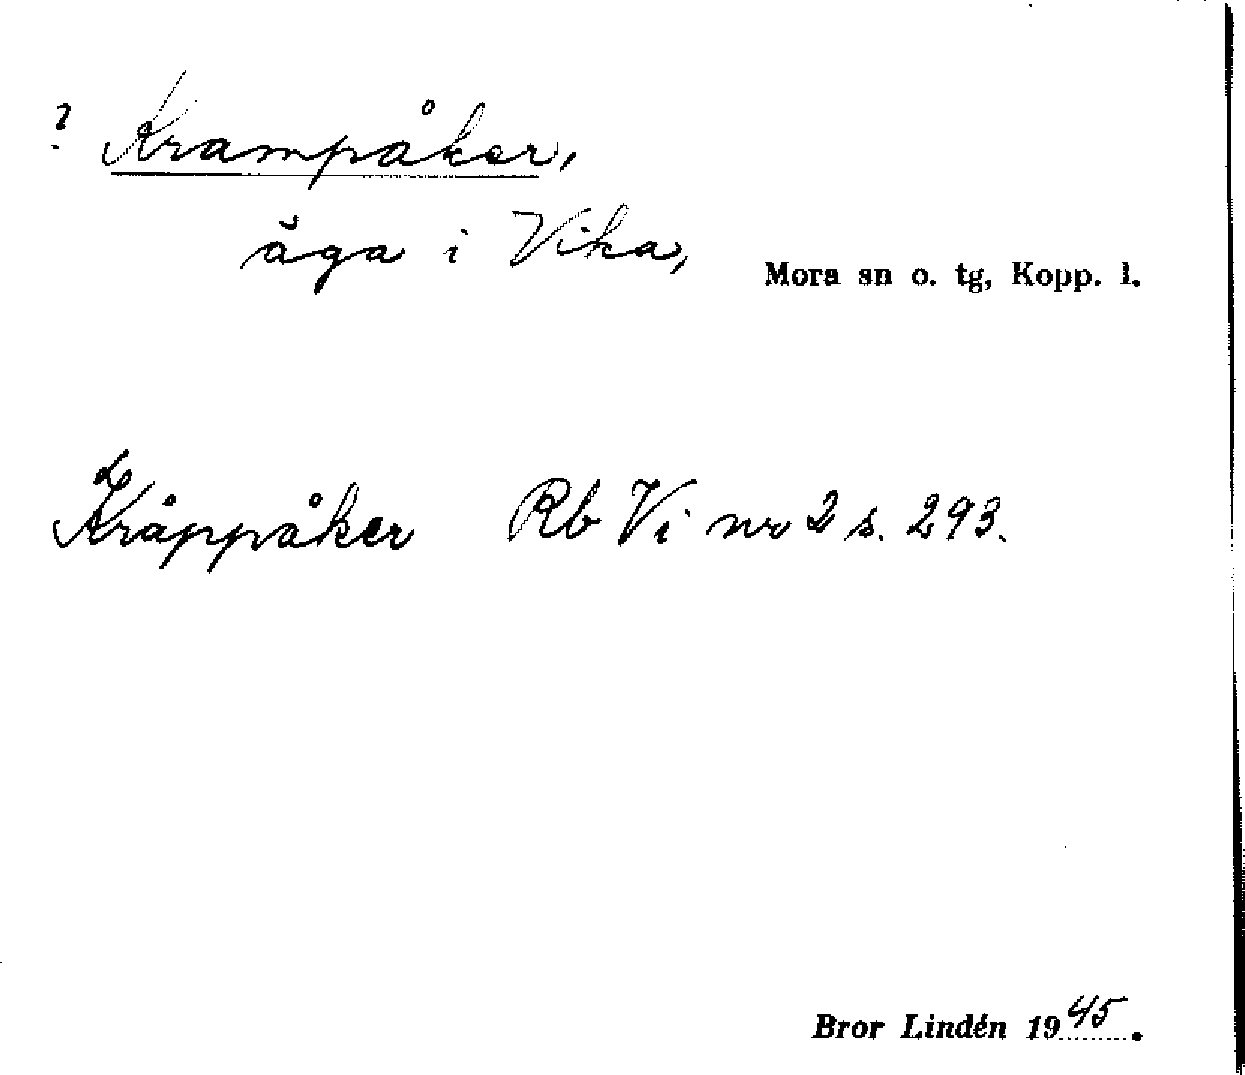 ? Krampåker,
äga i Vika,
Mora sn o. tg, Kopp. l.
Kråppåker Rb Vi nr 2 s. 293.
Bror Lindén 1945.